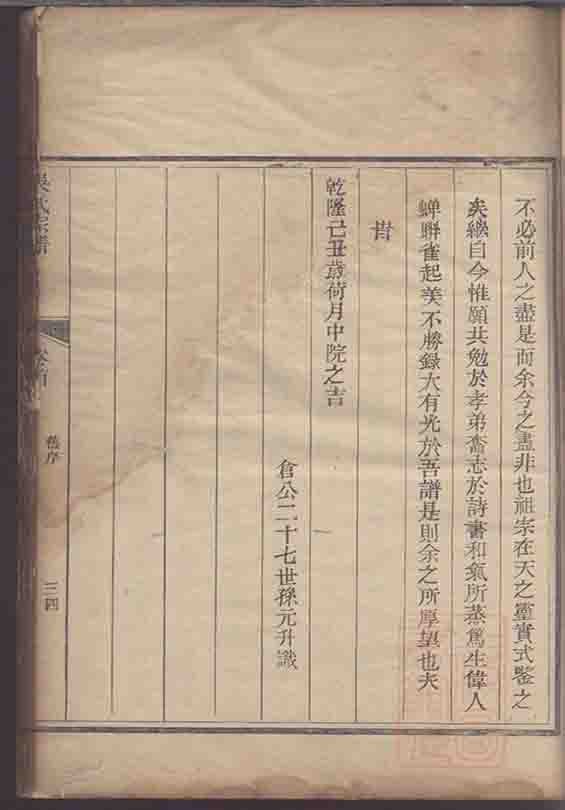 不必前人之盡是而余今之盡非也祖宗在天之靈實式鑒之
矣繼自今惟願共勉於孝弟奮志於詩書和氣所蒸篤生偉人
蟬聯雀起美不勝録大有光於吾譜是則余之所厚望也夫
旹
乾隆己丑歲荷月中院之吉
倉公二十七世孫元升識
吳氏宗譜
卷首
舊序
三四